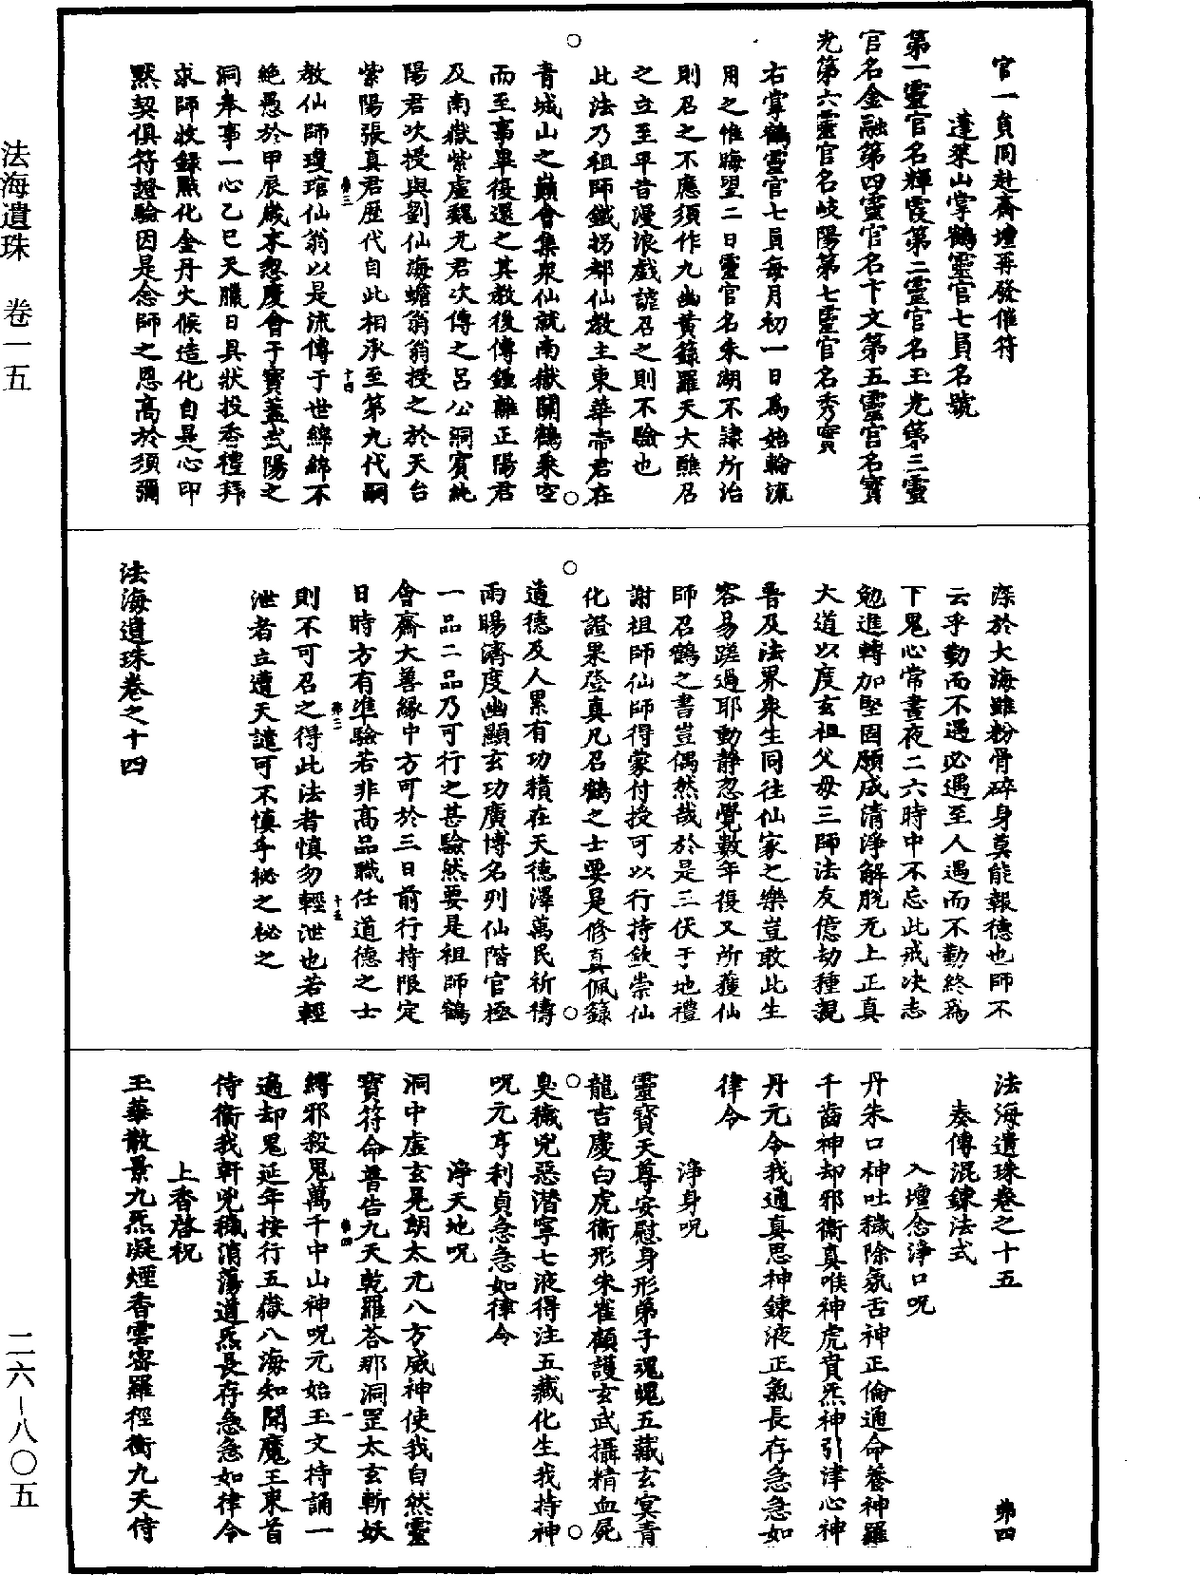 官一員同赴齋壇再發催符
蓬萊山掌鶴靈官七員名號
第一靈官名輝霞第二靈官名玉光第三靈
官名金融第四靈官名卞文第五靈官名寶
光第六靈官名岐陽第七靈官名秀實
右掌鶴靈官七員每月初一日為始輪流
用之惟晦望二日靈官名朱湖不隷所治
則召之不應須作九幽黃籙羅天大醮召
之立至平昔漫浪戲謔召之則不驗也
此法乃祖師鐵拐都仙教主東華帝君在
青城山之巔會集衆仙就南嶽關鶴乘空
而至事畢復還之其教後傳鍾離正陽君
及南嶽紫虛魏元君次傳之呂公洞賓純
陽君次授與劉仙海蟾翁翁授之於天台
紫陽張真君歷代自此相承至第九代嗣
教仙師瓊琯仙翁以是流傳于世綿綿不
絶愚於甲辰歲末忽慶會于寶蓋武陽之
洞奉事一心乙巳天臘日具狀投香禮拜
求師收録點化金丹火候造化自是心印
默契俱符證驗因是念師之恩高於須彌
深於大海雖粉骨碎身莫能報德也師不
云乎勤而不遇必遇至人遇而不勤終為
下鬼心常晝夜二六時中不忘此戒決志
勉進轉加堅固願成清淨解脫无上正真
大道以度玄祖父母三師法友億劫種親
普及法界衆生同往仙家之樂豈敢此生
容易蹉過耶動靜忽覺數年復又所獲仙
師召鶴之書豈偶然哉於是三伏于地禮
謝祖師仙師得蒙付授可以行持欽崇仙
化證果登真凡召鶴之士要是修真佩籙
道德及人累有功積在天德澤萬民祈禱
雨暘濟度幽顯玄功廣博名列仙階官極
一品二品乃可行之甚驗然要是祖師鶴
會齋大善緣中方可於三日前行持限定
日時方有準驗若非高品職任道德之士
則不可召之得此法者慎勿輕泄也若輕
泄者立遭天譴可不慎乎祕之祕之
法海遺珠卷之十四
法海遺珠卷之十五 弟四
奏傳混鍊法式
入壇念淨口呪
丹朱口神吐穢除氛舌神正倫通命養神羅
千齒神却邪衞真喉神虎賁炁神引津心神
丹元令我通真思神鍊液正氣長存急急如
律令
淨身呪
靈寶天尊安慰身形弟子魂魄五藏玄冥青
龍吉慶白虎衞形朱雀顧護玄武攝精血屍
臭穢兇惡潜寧七液得注五藏化生我持神
呪元亨利貞急急如律令
淨天地呪
洞中虛玄晃朗太元八方威神使我自然靈
寶符命普告九天乾羅荅那洞罡太玄斬妖
縛邪殺鬼萬千中山神呪元始玉文持誦一
遍却鬼延年按行五嶽八海知聞魔王束首
侍衞我軒兇穢消蕩道炁長存急急如律令
上香啓祝
玉華散景九炁凝煙香雲密羅徑衝九天侍
法海遺珠 卷一五
二六–八〇五